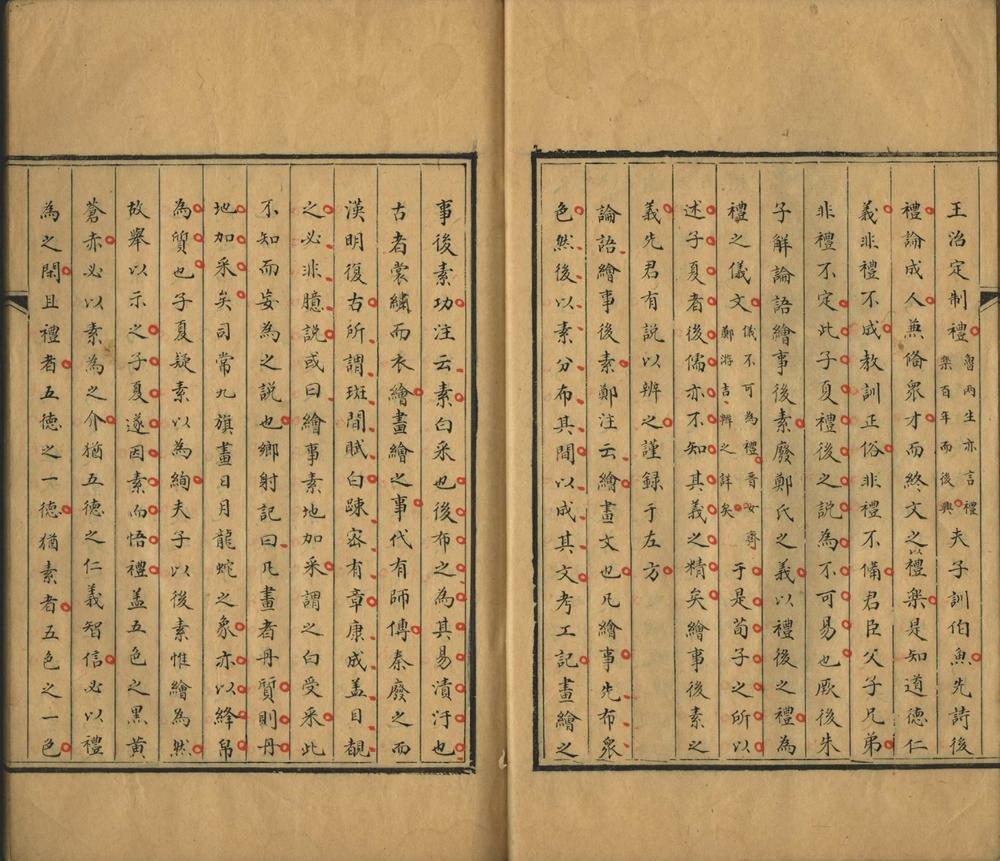 王治定制禮魯兩生亦言禮樂百年而後興夫子訓伯魚先詩後
禮論成人兼脩眾才而終文之以禮樂是知道德仁
義非禮不成教訓正俗非禮不備君臣父子兄弟
非禮不定此子夏禮後之説為不可易也厥後朱
子解論語繪事後素廢鄭氏之義以禮後之禮為
禮之儀文儀不可為禮晉女齊鄭游吉辨之詳矣于是荀子之所以
述子夏者後儒亦不知其義之精矣繪事後素之
義先君有説以辨之謹録于左方
論語繪事後素鄭注云繪畫文也凡繪事先布眾
色然後以素分布其間以成其文考工記畫繪之
事後素功注云素白采也後布之為其易漬汙也
古者裳繡而衣繪畫繪之事代有師傳秦廢之而
漢明復古所謂斑間賦白疎宻有章康成葢目覩
之必非臆説或曰繪事素地加采謂之白受采此
不知而妄為之説也鄉射記曰凡畫者丹質則丹
地加采矣司常九旗畫日月龍蛇之象亦以絳帛
為質也子夏疑素以為絢夫子以後素惟繪為然
故舉以示之子夏遂因素而悟禮葢五色之黑黄
蒼赤必以素為之介猶五德之仁義智信必以禮
為之閑且禮者五徳之一德猶素者五色之一色